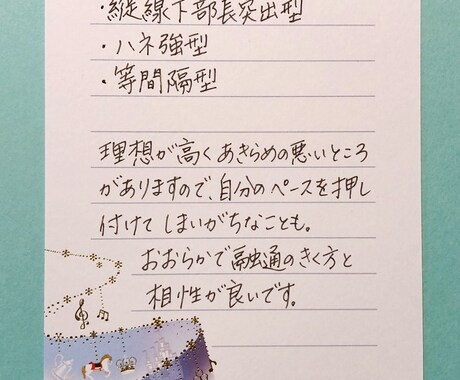 ・縦線下部長突出型
・ハネ強型
・等間隔型
理想が高くあきらめの悪いところ
がありますので、自分のペースを押し
付けてしまいがちなことも。
おおらかで融通のきく方と
相性が良いです。